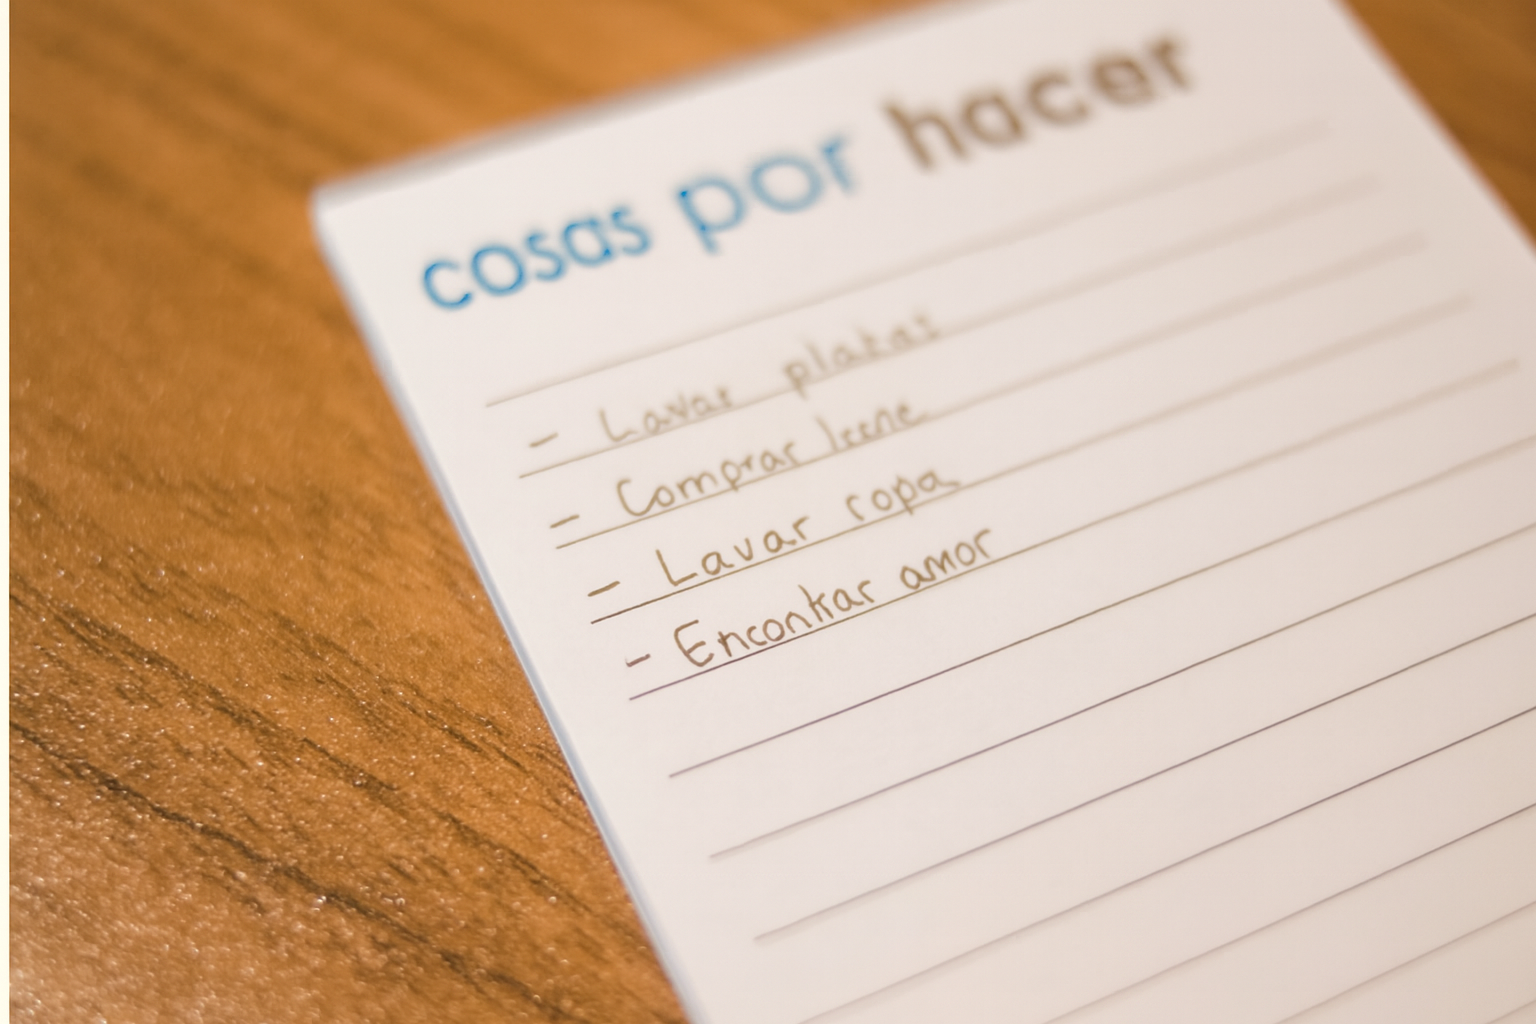 cosas por hacer
- Lavar platos
- Comprar leche
- Lavar ropa
- Encontrar amor